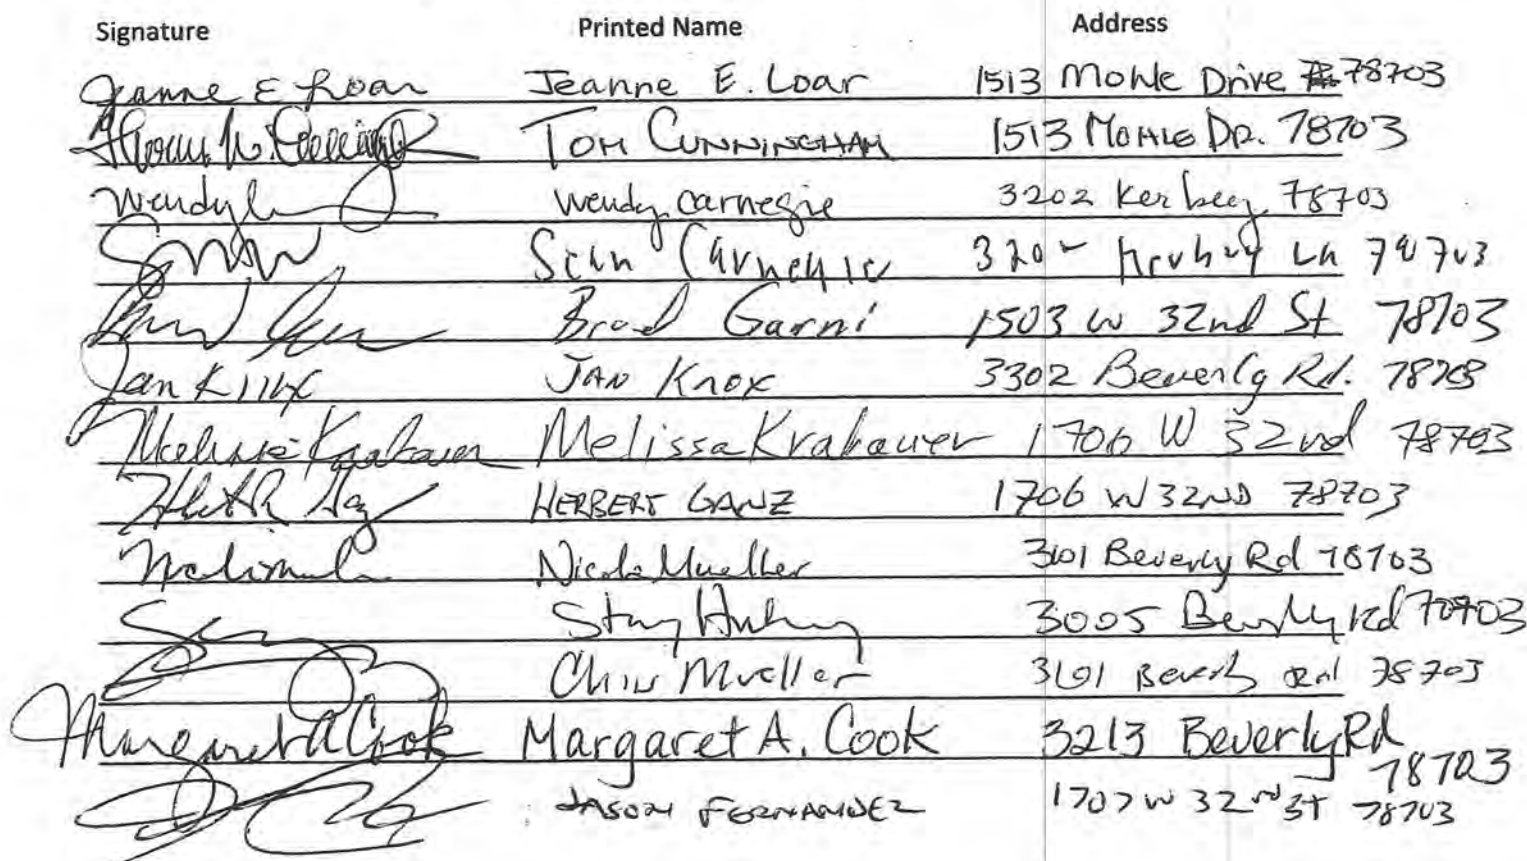 Signature Printed Name Address
Jeanne E Loar Jeanne E. Loar 1513 Mohle Drive 78703
Tom Cunningham 1513 Mohle Dr. 78703
Wendy Wendy Carnegie 3202 Kerbey 78703
Sean Carnegie 3202 Kerbey Ln 78703
Brad Garni 1503 W 32nd St 78703
Jan Knox Jan Knox 3302 Beverly Rd. 78703
Melissa Krakauer Melissa Krakauer 1706 W 32nd 78703
HERBERT GANZ 1706 W 32ND 78703
Nicole Mueller 3101 Beverly Rd 78703
3005 Beverly Rd 78703
Chris Mueller 3101 Beverly Rd 78703
Margaret A Cook Margaret A. Cook 3213 Beverly Rd
78703
JASON FERNANDEZ 1707 W 32nd ST 78703